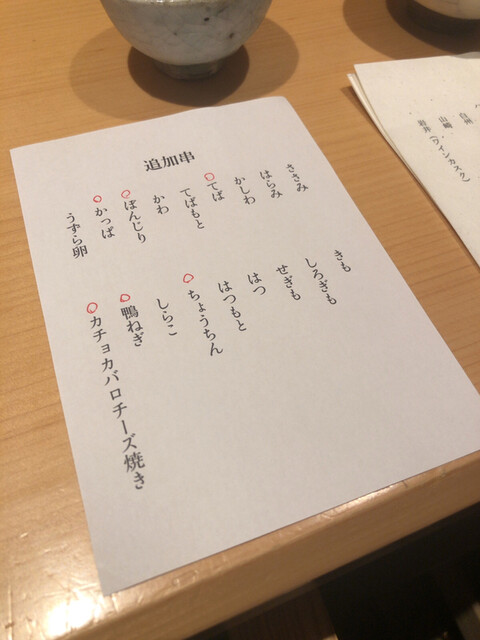 追加串
ささみ
はらみ
かしわ
てば
てばもと
かわ
ぼんじり
かっぱ
うずら卵
きも
しろぎも
せぎも
はつ
はつもと
ちょうちん
しらこ
鴨ねぎ
カチョカバロチーズ焼き
白州
山崎
岩井(ワインカスク)